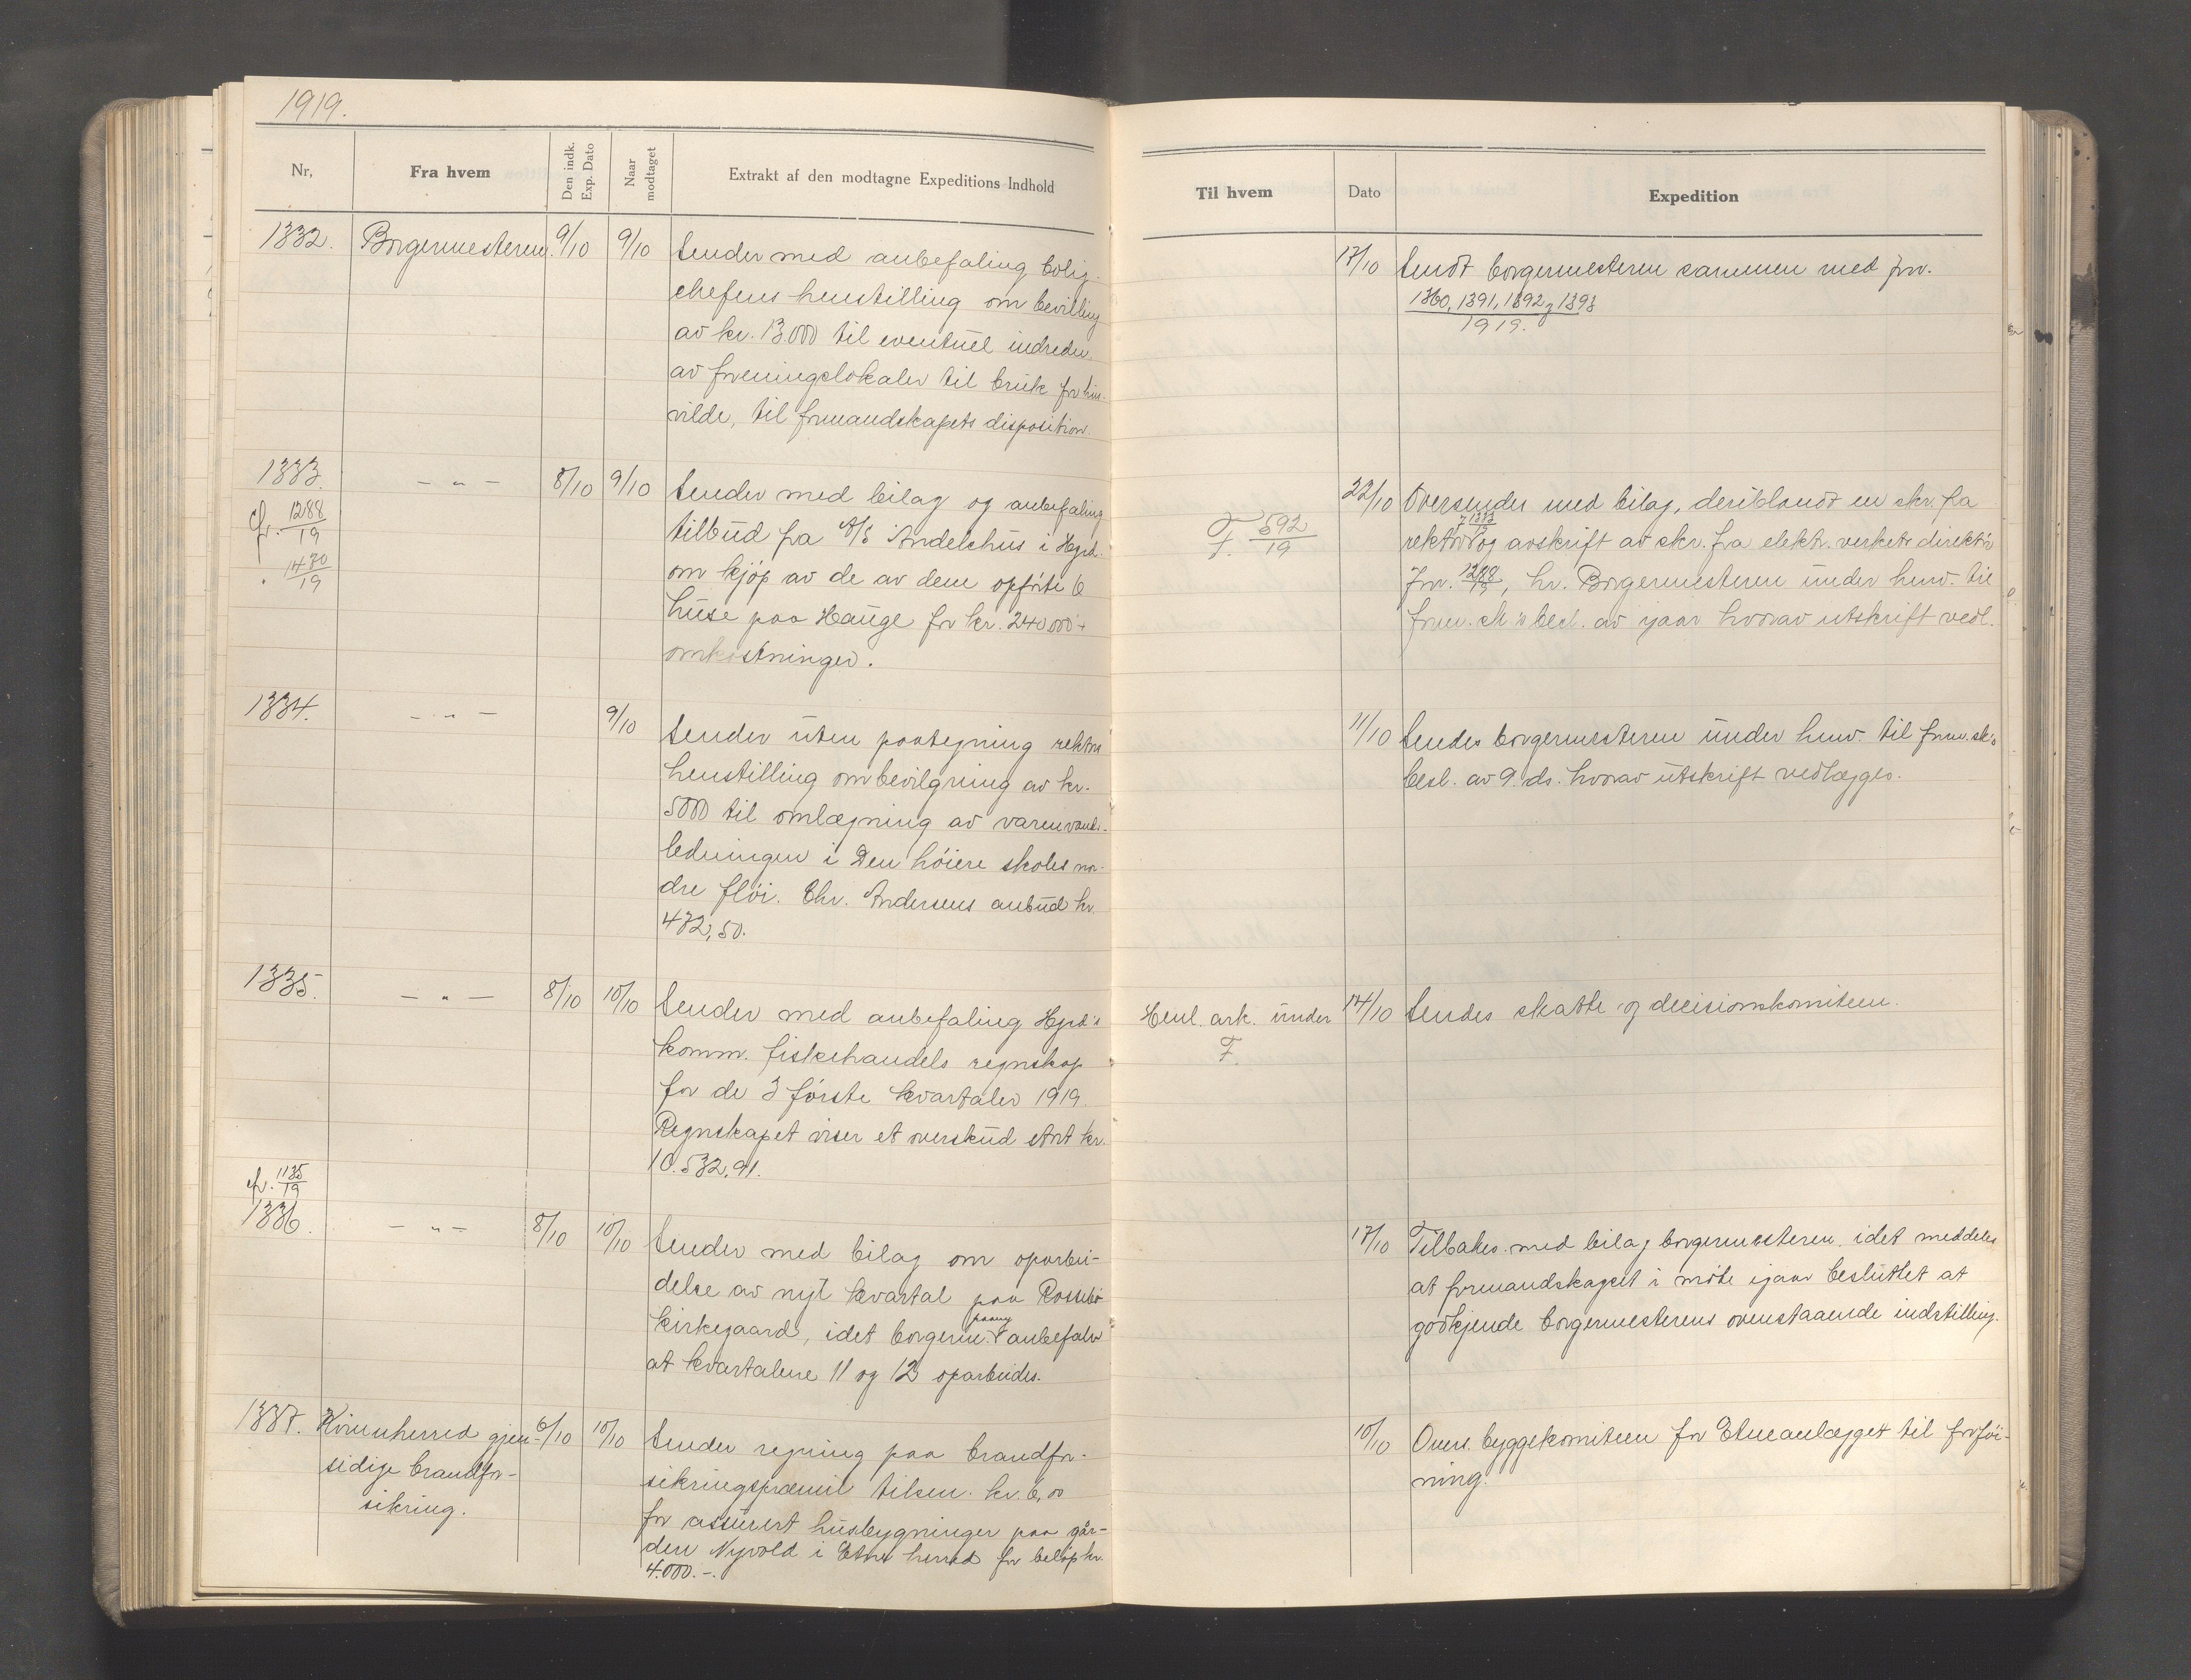 1919.
Nr.
Fra hvem
Den indk. Exp. Dato
Naar modtaget
Extrakt af den modtagne Expeditions Indhold
1332.
Borgermesteren.
9/10
9/10
Sender med anbefaling bolig-
chefens henstilling om bevilling
av kr. 13.000 til eventuel indredn.
av foreningslokaler til bruk for hus-
vilde, til formandskapets disposition.
1333.
cfr. 1288/19
1430/19
- " -
8/10
9/10
Sender med bilag og anbefaling
tilbud fra A/S Andelshus i Hgsd.
om kjøp av de av dem opførte 6
huse paa Hauge for kr. 240000 +
omkostninger.
1334.
- " -
9/10
Sender uten paategning rektors
henstilling om bevilgning av kr.
5000 til omlægning av varmvands-
ledningen i Den høiere skoles nor-
dre fløi. Chr. Andersens anbud kr.
472,50.
1335.
- " -
8/10
10/10
Sender med anbefaling Hgsd's
komm. fiskehandels regnskap
for de 3 første kvartaler 1919.
Regnskapet viser et overskud stort kr.
10.532,91.
cfr. 1135/19
1336.
- " -
8/10
10/10
Sender med bilag om oparbei-
delse av nyt kvartal paa Rossebø
kirkegaard, idet borgerm. paany anbefaler
at kvartalene 11 og 12 oparbeides.
1337.
Kvinnherred gjen-
sidige brandfor-
sikring.
6/10
10/10
Sender regning paa brandfor-
sikringspræmie tilsen. kr. 6,00
for assurert husbygninger paa går-
den Nyvold i Etne herred for beløp kr.
4.000.-.
Til hvem
Dato
Expedition
17/10
Sendt borgermesteren sammen med jnr.
1360, 1391, 1392 og 1393
1919.
F. 592/19
22/10
Oversendes med bilag, deriblandt en skr. fra
rektor og avskrift av skr. fra elektr. verkets direktør
Jnr. 1288/19, hr. Borgermesteren under henv. til
form.sk's besl. av igaar hvorav utskrift vedl.
11/10
Sendes borgermesteren under henv. til form.sk's
besl. av 9. ds. hvorav utskrift vedlægges.
Henl. ark. under
F.
14/10
Sendes skatte og decisionskomiteen.
17/10
Tilbakes. med bilag borgermesteren, idet meddeles
at formandskapet i møte igaar besluttet at
godkjende borgermesterens ovenstaaende indstilling.
10/10
Overs. byggekomiteen for Etneanlægget til forføi-
ning.